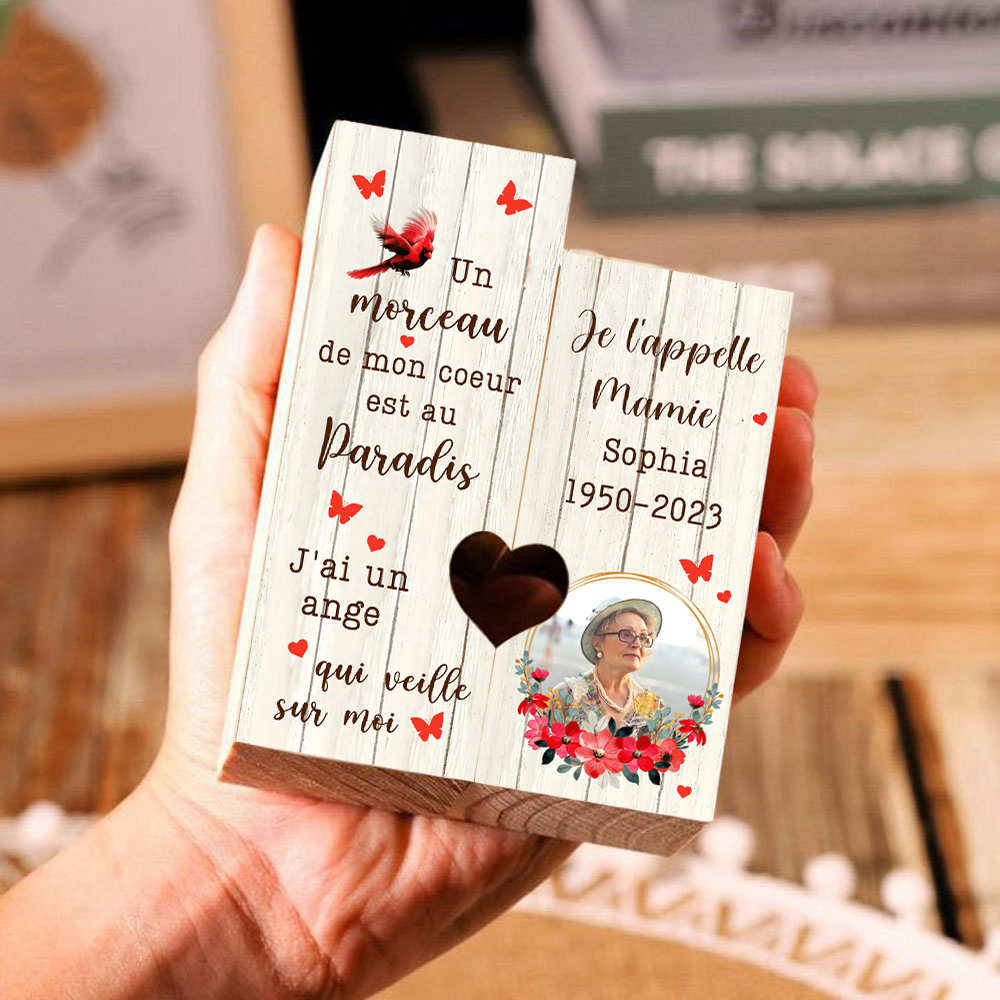 Un
morceau
de mon coeur
est au
Paradis
J'ai un
ange
qui veille
sur moi
Je l'appelle
Mamie
Sophia
1950-2023
THE SOLACE